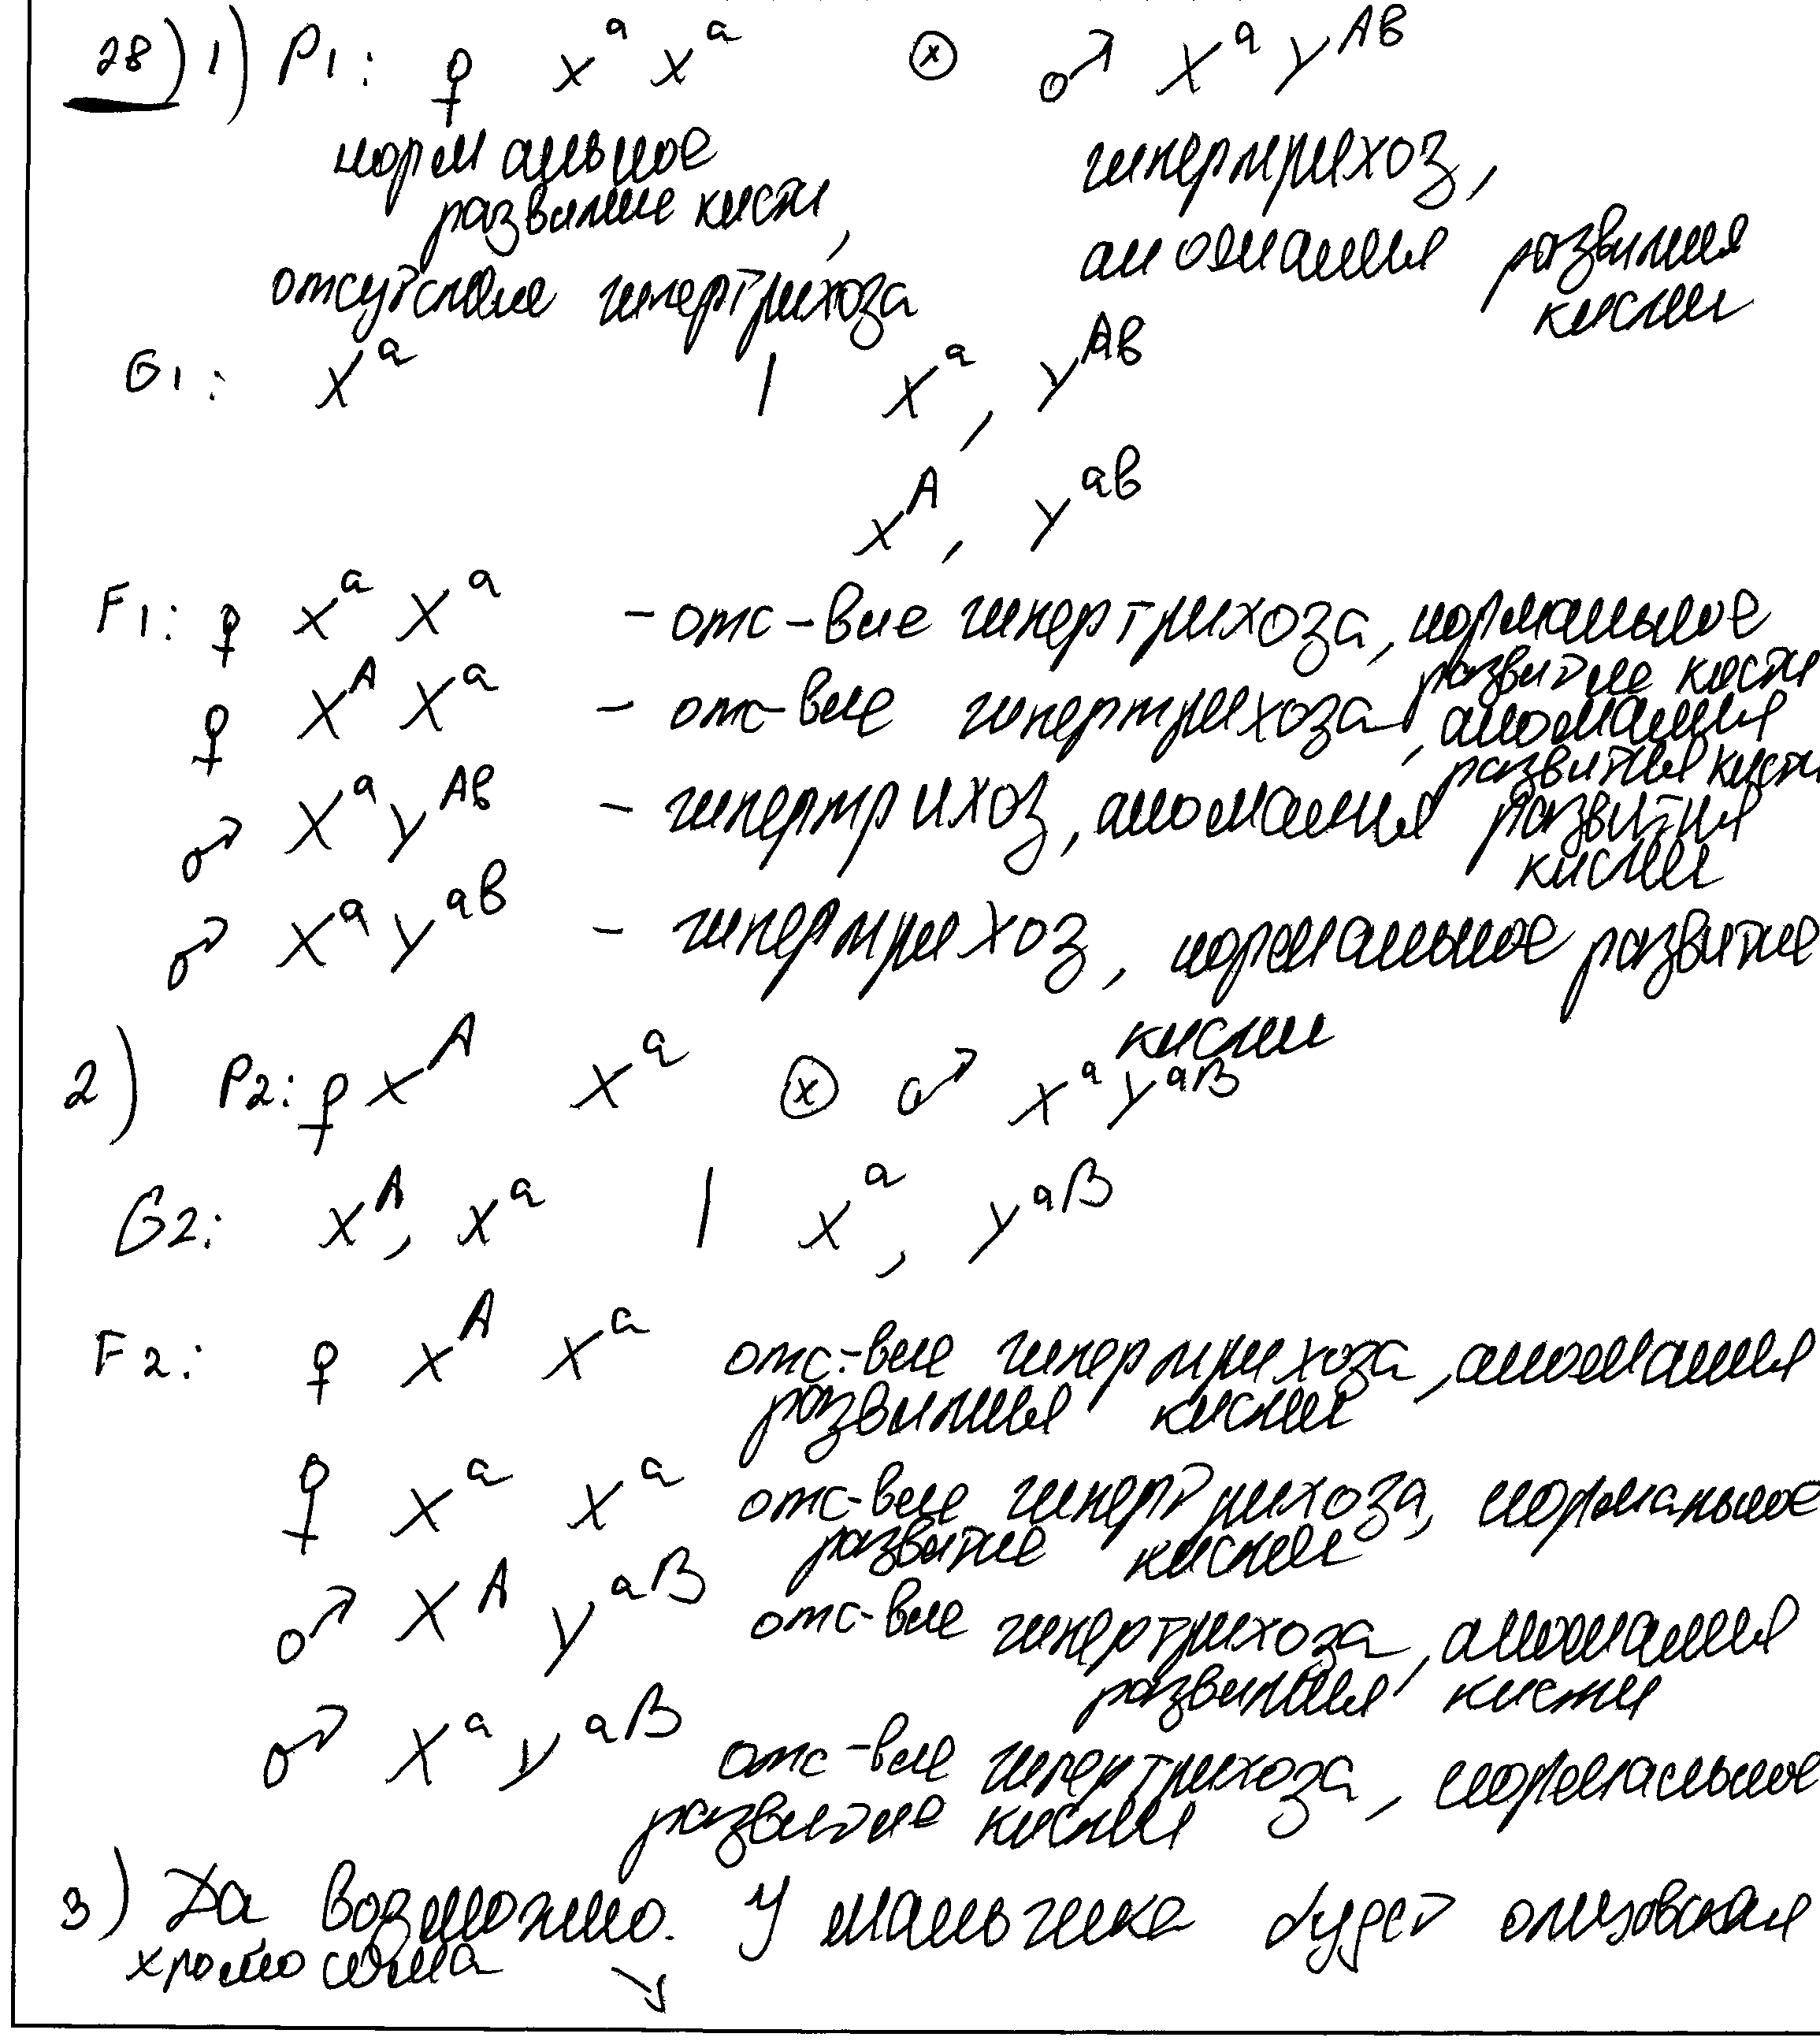 28) 1) P1: ♀ xᵃ xᵃ ⊗ ♂ Xᵃ Yᴬᵇ
нормальное гипертрихоз,
развитие кисти, аномалия развития
отсутствие гипертрихоза кисти
G1: Xᵃ | Xᵃ, Yᴬᵇ
Xᴬ, Yᵃᵇ
F1: ♀ Xᵃ Xᵃ – отс-вие гипертрихоза, нормальное развитие кисти
♀ Xᴬ Xᵃ – отс-вие гипертрихоза, аномалия развития кисти
♂ Xᵃ Yᴬᵇ – гипертрихоз, аномалия развития кисти
♂ Xᵃ Yᵃᵇ – гипертрихоз, нормальное развитие кисти
2) P2: ♀ Xᴬ Xᵃ ⊗ ♂ Xᵃ Yᵃᴮ
G2: Xᴬ, Xᵃ | Xᵃ, Yᵃᴮ
F2: ♀ Xᴬ Xᵃ отс-вие гипертрихоза, аномалия
развития кисти
♀ Xᵃ Xᵃ отс-вие гипертрихоза, нормальное
развитие кисти
♂ Xᴬ Yᵃᴮ отс-вие гипертрихоза, аномалия
развития кисти
♂ Xᵃ Yᵃᴮ отс-вие гипертрихоза, нормальное
развитие кисти
3) Да возможно. У мальчика будет отцовская
хромосома ↘